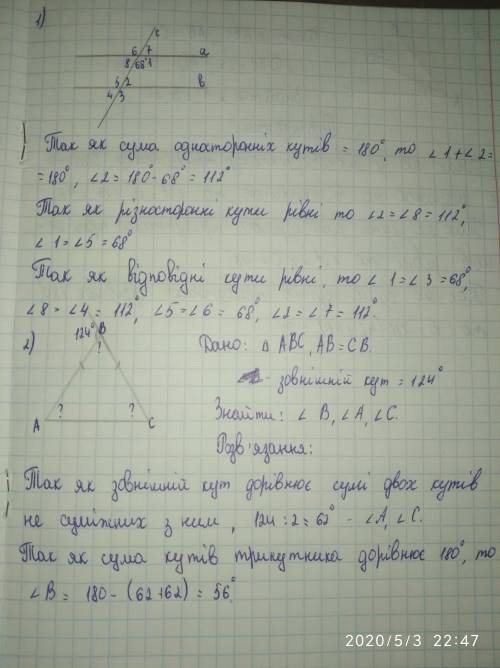 1)
c
6 7 a
8 68° 1
5 2 b
4 3
Так як сума односторонніх кутів = 180°, то ∠1 + ∠2 =
= 180°, ∠2 = 180° - 68° = 112°
Так як різносторонні кути рівні то ∠2 = ∠8 = 112°,
∠1 = ∠5 = 68°
Так як відповідні кути рівні, то ∠1 = ∠3 = 68°,
∠8 = ∠4 = 112°, ∠5 = ∠6 = 68°, ∠2 = ∠7 = 112°.
2) 124° B Дано: △ ABC, AB = CB.
? - зовнішній кут = 124°
A ? ? C Знайти: ∠B, ∠A, ∠C.
Розв'язання:
Так як зовнішній кут дорівнює сумі двох кутів
не суміжних з ним, 124 : 2 = 62° - ∠A, ∠C.
Так як сума кутів трикутника дорівнює 180°, то
∠B = 180 - (62 + 62) = 56°.
2020/5/3 22:47